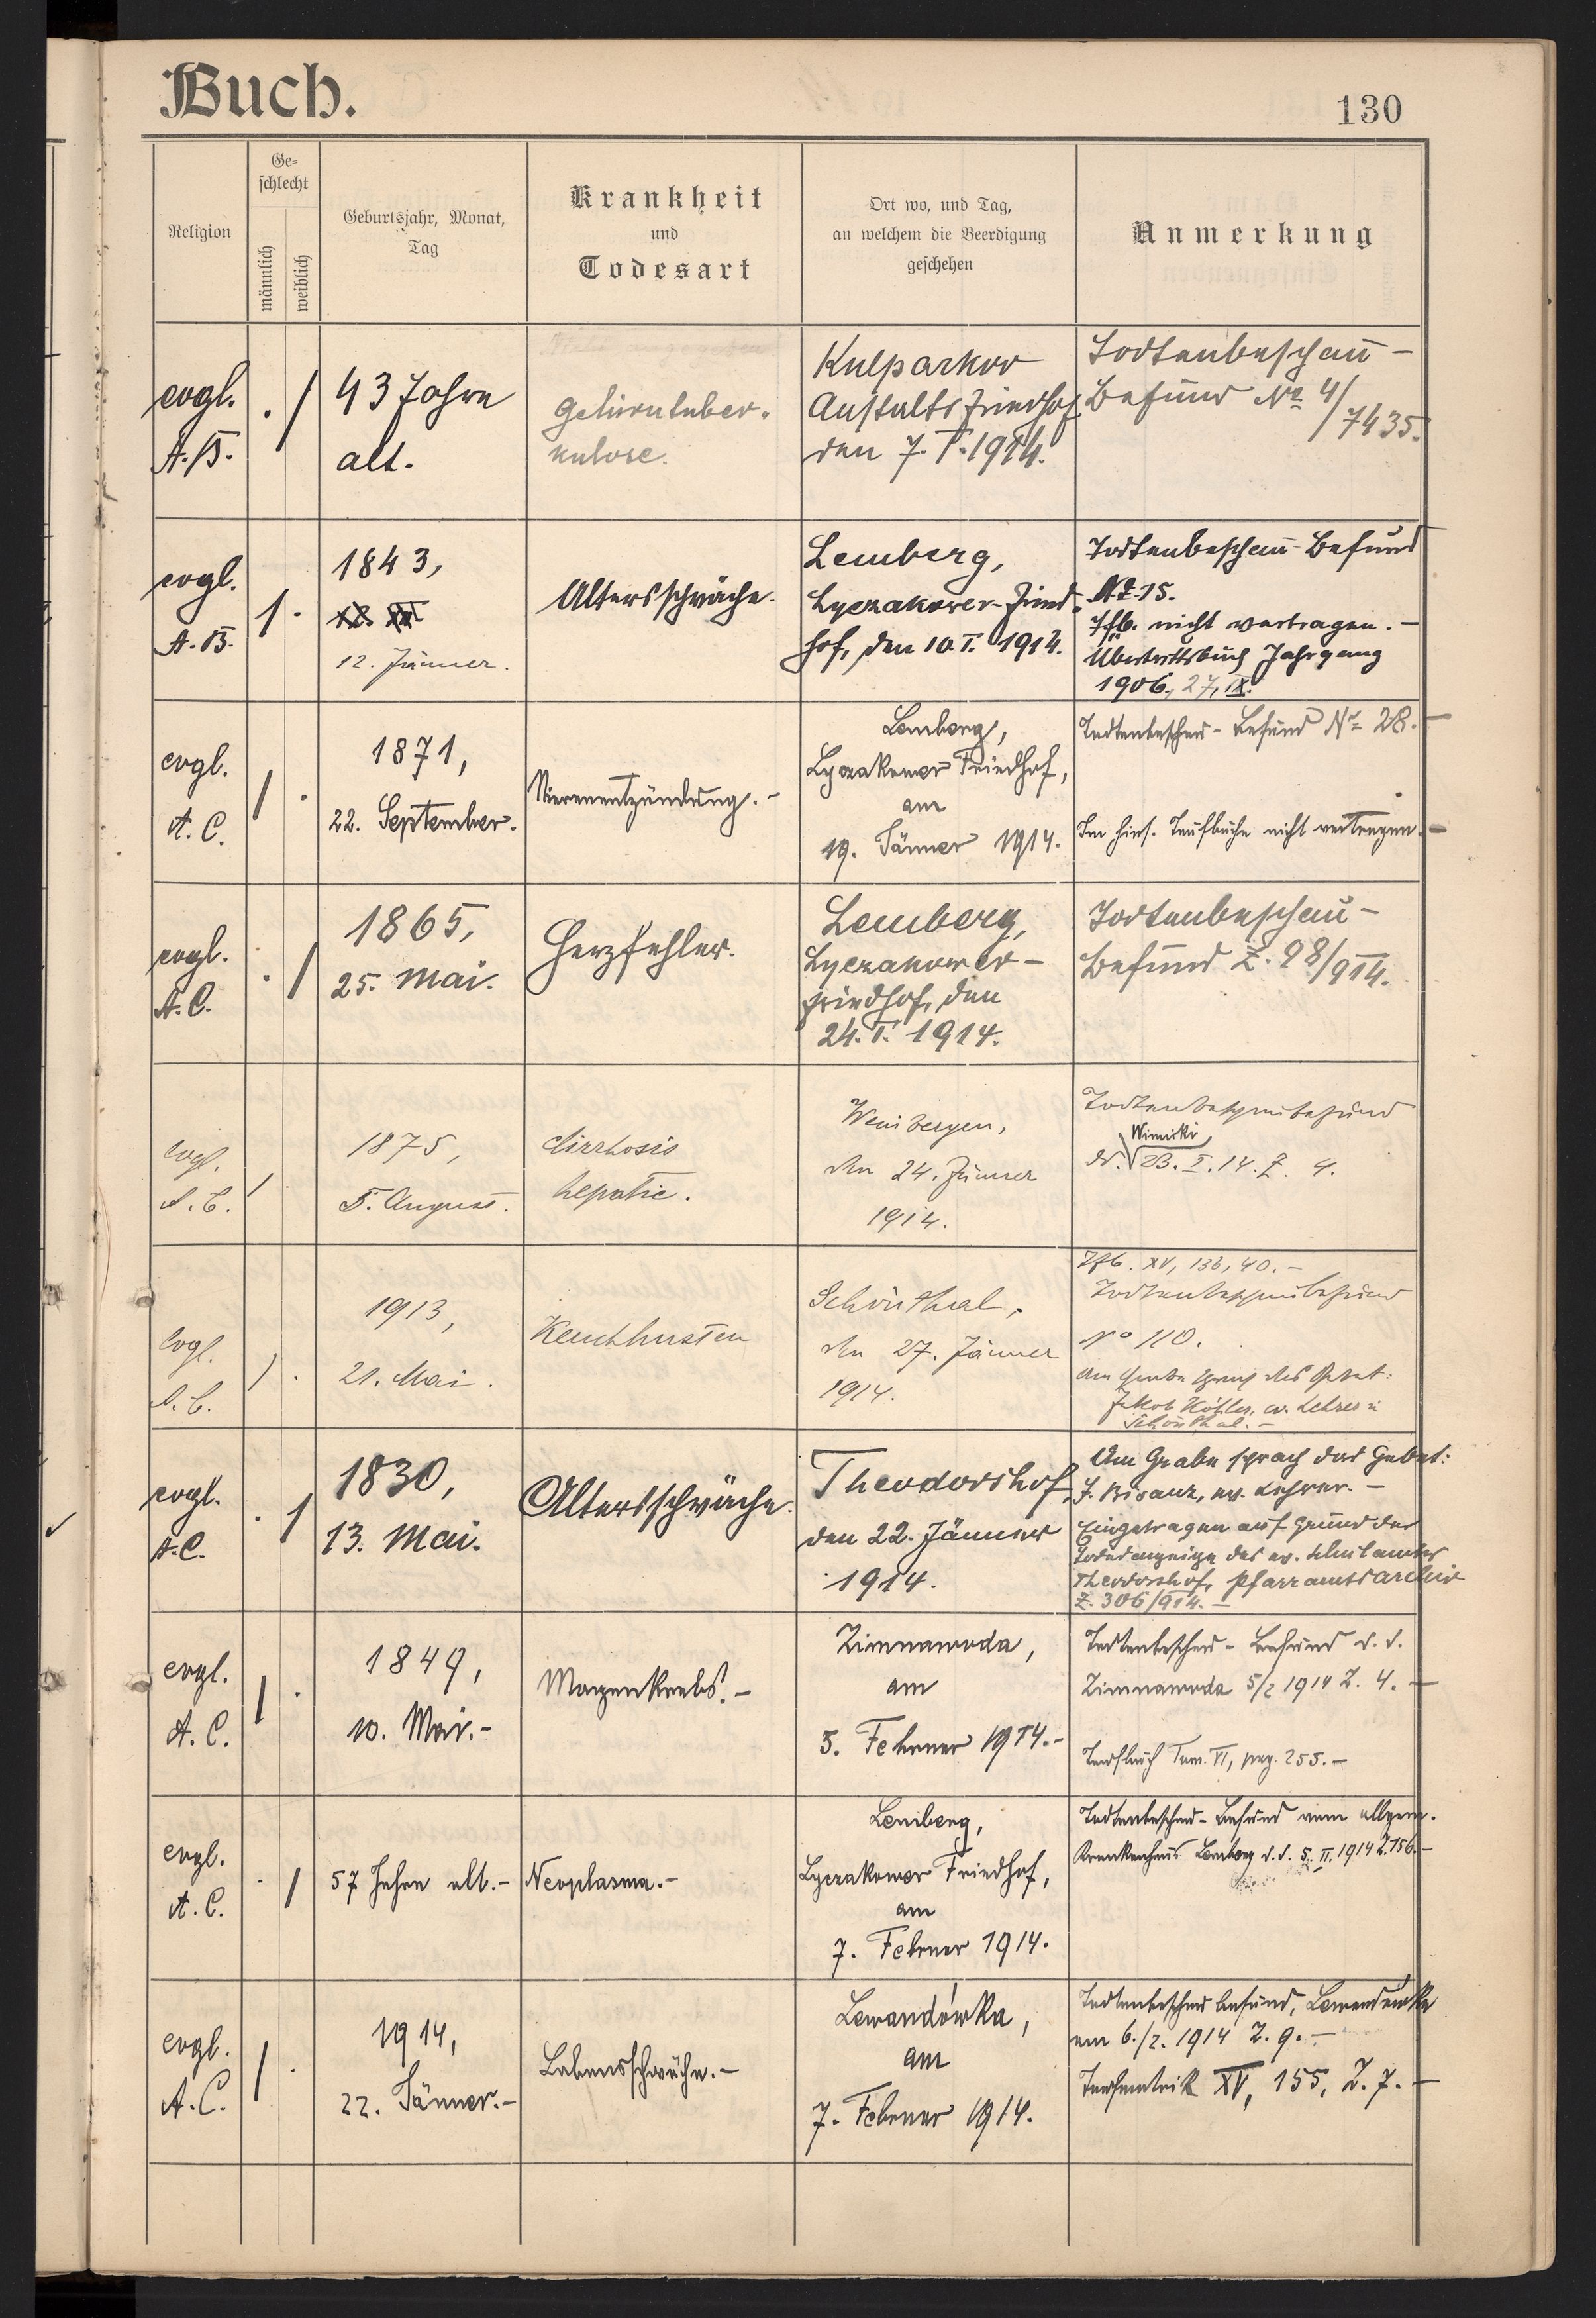 Buch.
130
Religion
Ge-
schlecht
männlich
weiblich
Geburtsjahr, Monat,
Tag
Krankheit
und
Todesart
Ort wo, und Tag,
an welchem die Beerdigung
geschehen
Anmerkung
evgl.
A.B.
. /
43 Jahre
alt.
Gehirntuber-
kulose.
Kulparkov
Anstalts Friedhof
den 7. I. 1914.
Todtenbeschau-
Befund No 4/
/7435.
evgl.
A.B.
1 .
1843,
12. Jänner.
Altersschwäche.
Lemberg,
Lyczakower-Fried-
hof, den 10. I. 1914.
Todtenbeschau-Befund
No 15.
Tfb. nicht vertragen. -
Übertrittsbuch Jahrgang
1906, 27, IX.
evgl.
A. C.
/ .
1871,
22. September.
Nierenentzündung. -
Lemberg,
Lyczakower Friedhof,
am
19. Jänner 1914.
Todtenbeschau-Befund No 28. -
Im hies. Taufbuche nicht vertragen. -
evgl.
A. C.
. /
1865,
25. Mai.
Herzfehler.
Lemberg,
Lyczakower-
friedhof, den
24. I. 1914.
Todtenbeschau-
Befund Z. 98/914.
evgl.
A. C.
/
1875,
5. August.
Cirrhosis
hepatic.
Weinbergen,
den 24. Jänner
1914.
Todtenbeschaubefund
Winniki
dd. 23. I. 14. Z. 4.
evgl.
A. C.
/ .
1913,
21. Mai.
Keuchhusten
Schönthal,
den 27. Jänner
1914.
Tfb. XV, 136, 40. -
Todtenbeschaubefund
No 110.
Am Grabe sprach das Gebet:
Jakob Köhler, ev. Lehrer in
Schönthal. -
evgl.
A.C.
. /
1830,
13. Mai.
Altersschwäche.
Theodorshof,
den 22. Jänner
1914.
Am Grabe sprach das Gebet:
J. Bisanz, ev. Lehrer. -
Eingetragen auf Grund der
Todesanzeige des ev. Schulamtes
Theodorshof, Pfarramtsarchiv
Z. 306/914. -
evgl.
A. C.
/ .
1849,
10. Mai. -
Magenkrebs. -
Zimnawoda,
am
5. Februar 1914. -
Todtenbeschau-Befund d. d.
Zimnawoda 5/2 1914 Z. 4. -
Taufbuch Tom. VI, pag. 255. -
evgl.
A. C.
. /
57 Jahre alt. -
Neoplasma. -
Lemberg,
Lyczakower Friedhof,
am
7. Februar 1914.
Todtenbeschau-Befund vom allgem.
Krankenhaus Lemberg d. d. 5. II. 1914 Z. 156. -
evgl.
A. C.
/ .
1914,
22. Jänner. -
Lebensschwäche. -
Lewandówka,
am
7. Februar 1914.
Todtenbeschaubefund, Lewandówka
am 6./2. 1914 Z. 9. -
Taufmatrik XV, 155, Z. 7. -